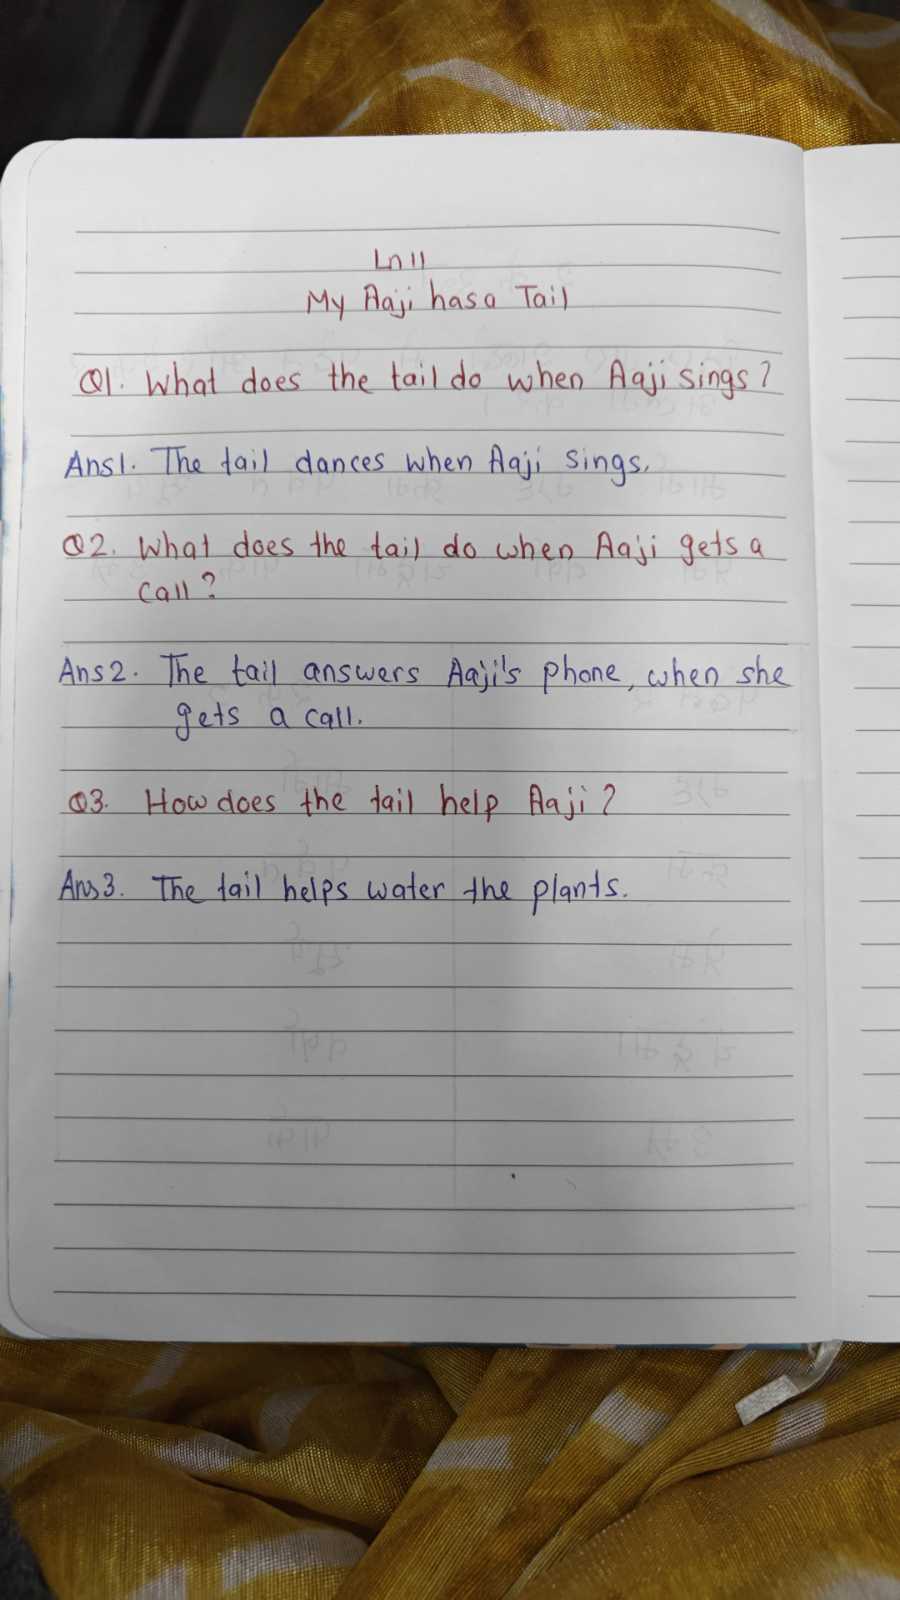 Ln 11
My Aaji has a Tail
Q1. What does the tail do when Aaji sings?
Ans1. The tail dances when Aaji sings.
Q2. What does the tail do when Aaji gets a
call?
Ans2. The tail answers Aaji's phone, when she
gets a call.
Q3. How does the tail help Aaji?
Ans3. The tail helps water the plants.